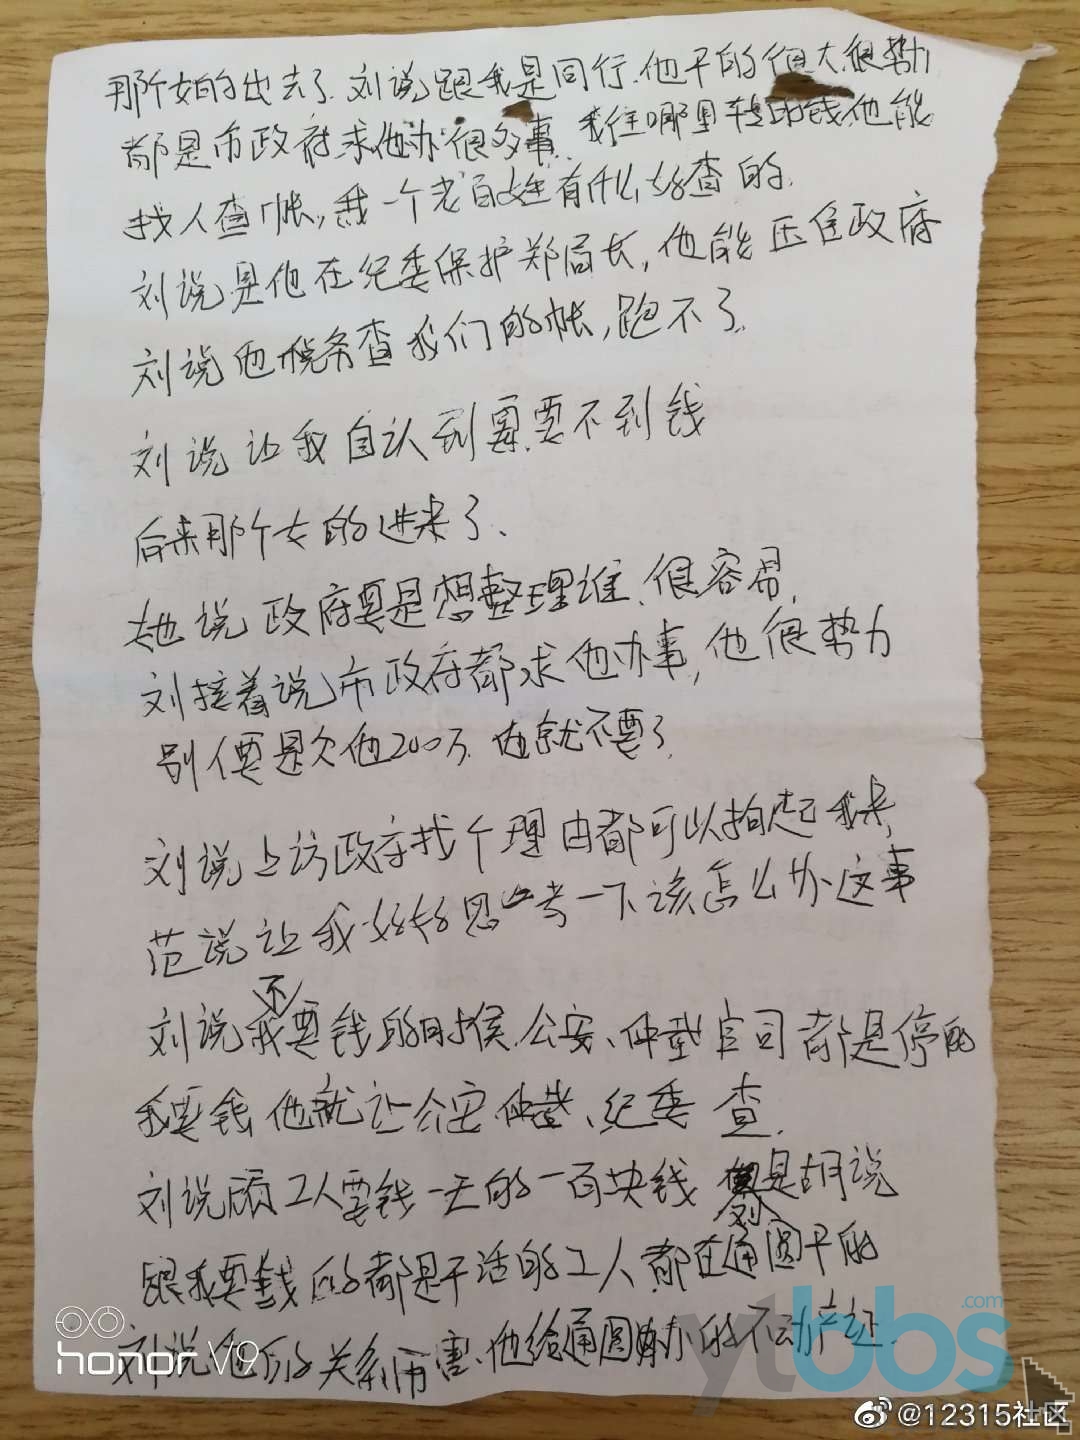 那个女的出去了.刘说跟我是同行.他干的很大.很势力
都是市政府求他办很多事.我往哪里转的钱,他能
找人查帐,我一个老百姓有什么好查的.
刘说是他在纪委保护郑局长,他能压住政府
刘说他税务查我们的帐,跑不了.
刘说让我自认到霉.要不到钱
后来那个女的进来了.
她说政府要是想整理谁、很容易,
刘接着说市政府都求他办事,他很势力
别人要是欠他200万.他就不要了.
刘说上访政府找个理由都可以拍起我来,
范说让我好好思考一下该怎么办这事
刘说我不要钱的时候.公安、仲裁官司都是停的
我要钱,他就让公安仲裁、纪委查.
刘说顾工人要钱一天的一百块钱 是胡说
跟我要钱的都是干活的工人都在通圆干的
刘说他的关系厉害、他给通圆办的不动产证.
honor V9
ytbbs.com
@12315社区
社区